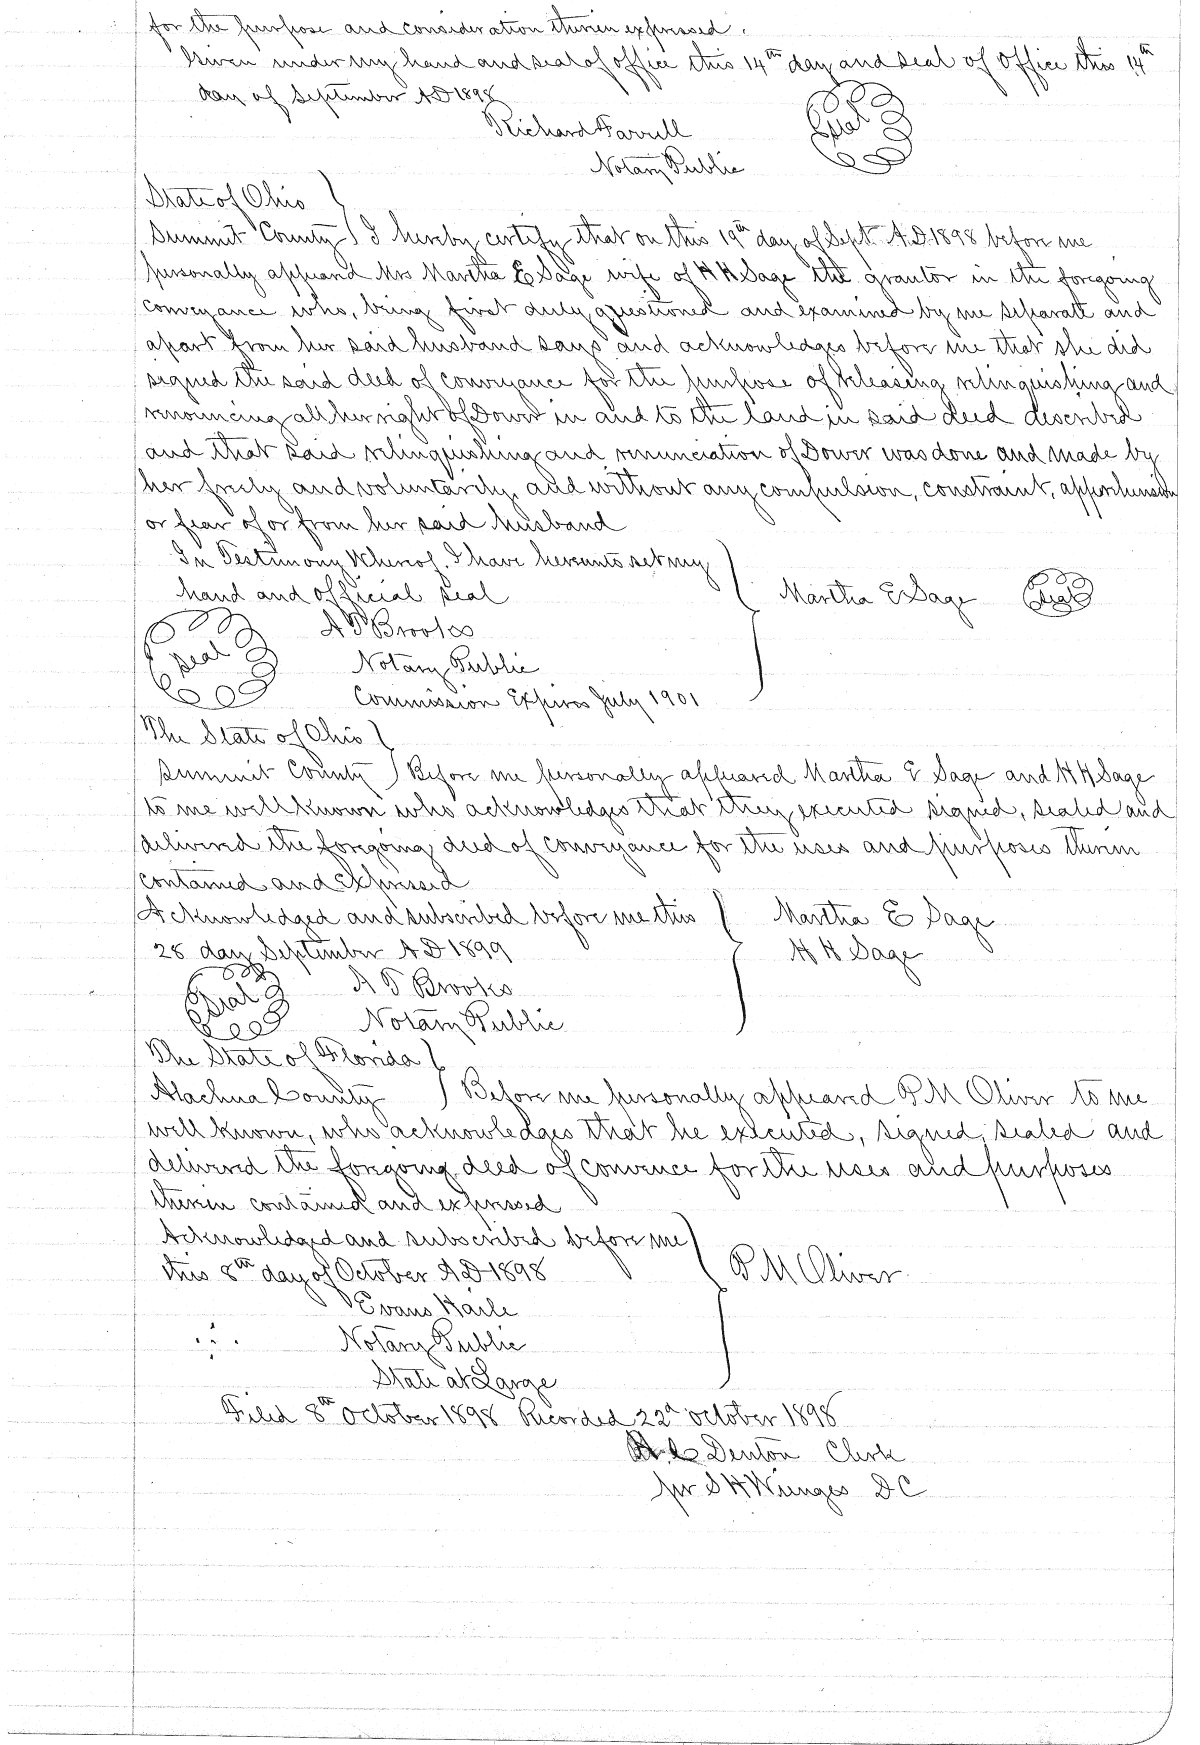 for the purpose and consideration therein expressed.
Given under my hand and seal of office this 14th day and seal of office this 14th
day of September AD 1898
Richard Farrell
Notary Public
Seal
State of Ohio
Summit County I hereby certify that on this 19th day of Sept A.D. 1898 before me
personally appeared Mrs Martha E Sage wife of H H Sage the grantor in the foregoing
conveyance who, being first duly questioned and examined by me separate and
apart from her said husband says and acknowledges before me that she did
signed the said deed of conveyance for the purpose of releasing relinquishing and
renouncing all her right of Dower in and to the land in said deed described
and that said relinquishing and renunciation of Dower was done and made by
her freely and voluntarily, and without any compulsion, constraint, apprehension
or fear of or from her said husband
In Testimony Whereof. I have hereunto set my
hand and official seal
Martha E Sage Seal
A T Brooks
Seal
Notary Public
Commission Expires July 1901
The State of Ohio
Summit County Before me personally appeared Martha E Sage and H H Sage
to me well known who acknowledges that they executed signed, sealed and
delivered the foregoing deed of conveyance for the uses and purposes therein
contained and expressed
Acknowledged and subscribed before me this Martha E Sage
28 day September AD 1899 H H Sage
Seal A T Brooks
Notary Public
The State of Florida
Alachua County Before me personally appeared P M Oliver to me
well known, who acknowledges that he executed, signed, sealed and
delivered the foregoing deed of convence for the uses and purposes
therein contained and expressed
Acknowledged and subscribed before me
this 8th day of October A.D. 1898 P M Oliver
Evans Haile
Notary Public
State at Large
Filed 8th October 1898 Recorded 22d October 1898
Denton Clerk
per S H Wienges D C